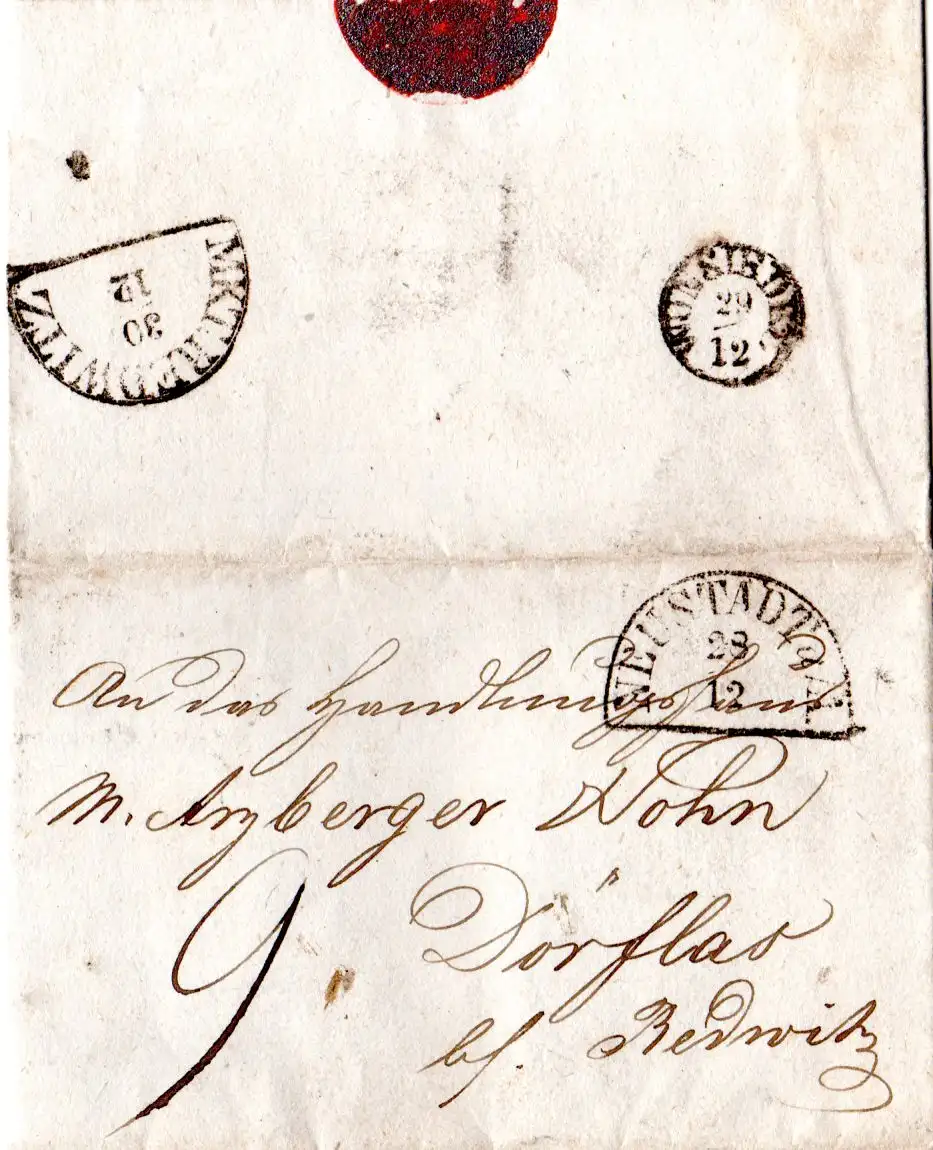 MKT.REDWITZ
30
12
WUNSIEDEL
29
12
NEUSTADT
28
12
An das Handlungshaus
M. Arzberger Sohn
9
Dörflas
bf. Redwitz